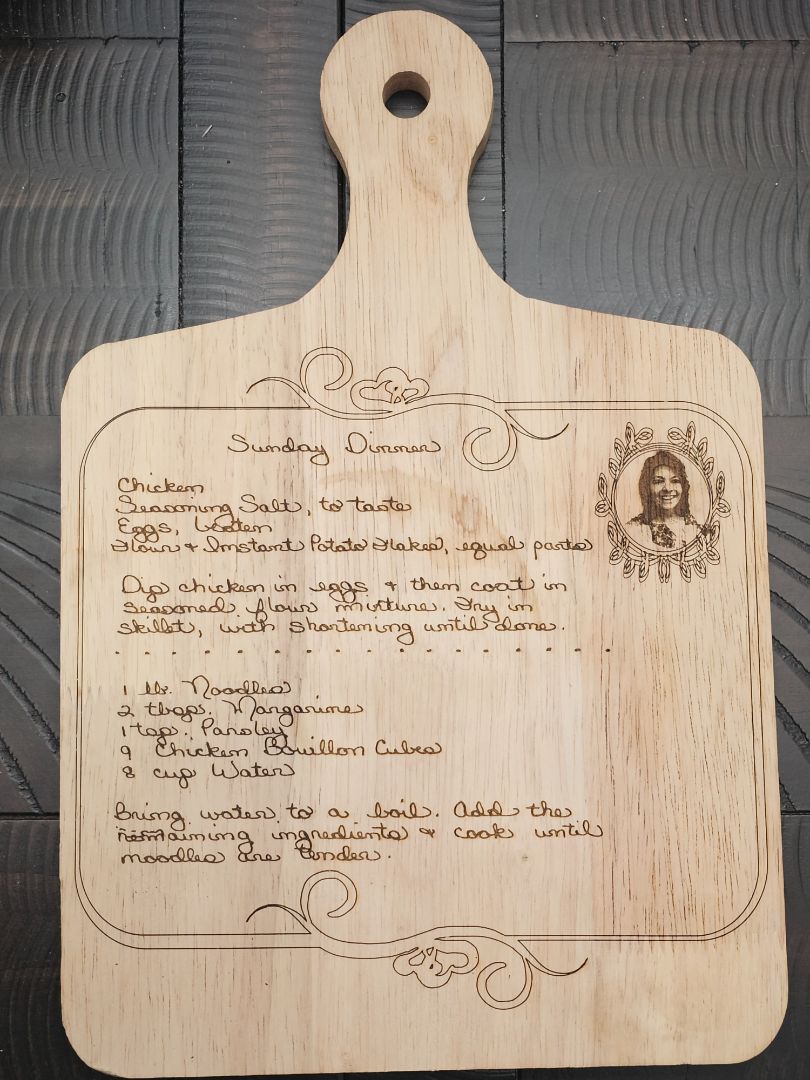 Sunday Dinner
Chicken
Seasoning Salt, to taste
Eggs, beaten
Flour & Instant Potato Flakes, equal parts
Dip chicken in eggs & then coat in
seasoned flour mixture. Fry in
skillet, with shortening until done.
1 lb. Noodles
2 tbsps. Margarine
1 tsp. Parsley
9 Chicken Bouillon Cubes
8 cup Water
Bring water to a boil. Add the
remaining ingredients & cook until
noodles are tender.